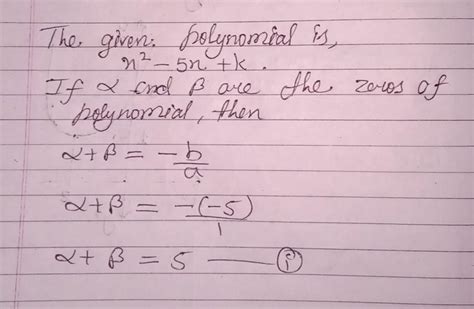 The given: polynomial is,
x² - 5x + k.
If α and β are the zeros of
polynomial, then
α + β = -b/a
α + β = -(-5)/1
α + β = 5 —— (i)